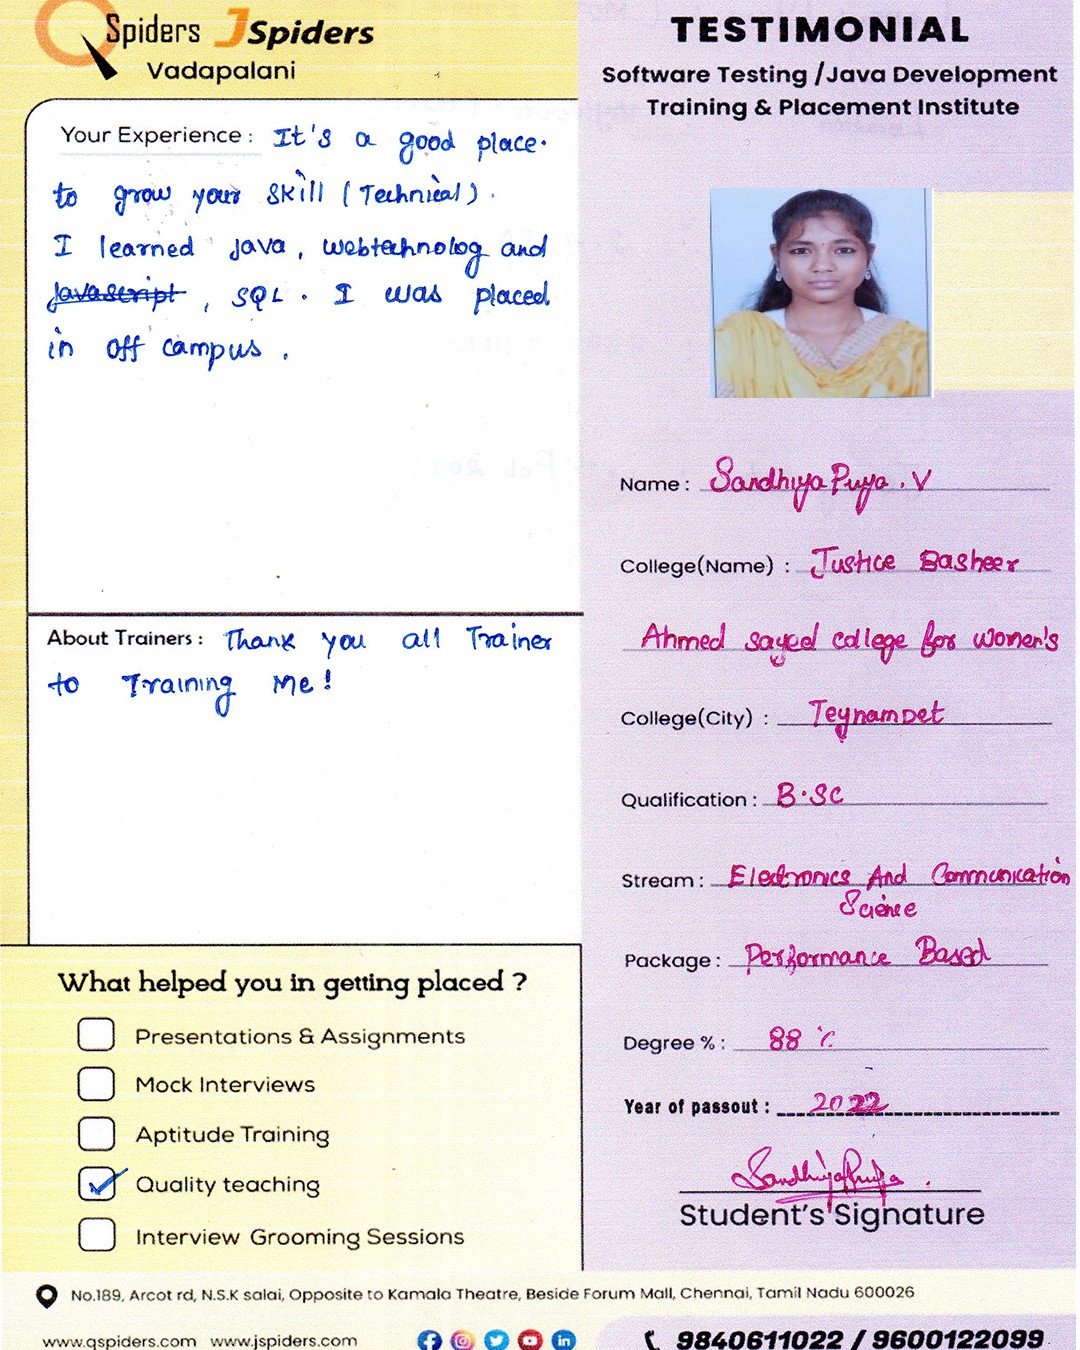 QSpiders JSpiders
Vadapalani
TESTIMONIAL
Software Testing /Java Development
Training & Placement Institute
Your Experience : It's a good place.
to grow your skill (Technical).
I learned java, webtechnolog and
javascript, SQL. I was placed
in off campus.
About Trainers : Thank you all Trainer
to Training Me!
What helped you in getting placed ?
Presentations & Assignments
Mock Interviews
Aptitude Training
Quality teaching
Interview Grooming Sessions
Name : Sandhiya Priya . V
College(Name) : Justice Basheer
Ahmed sayeed college for women's
College(City) : Teynampet
Qualification : B.Sc
Stream : Electronics And Communication
Science
Package : Performance Based
Degree % : 88 %
Year of passout : 2022
SandhiyaPriya.
Student's Signature
No.189, Arcot rd, N.S.K salai, Opposite to Kamala Theatre, Beside Forum Mall, Chennai, Tamil Nadu 600026
www.qspiders.com www.jspiders.com
9840611022 / 9600122099